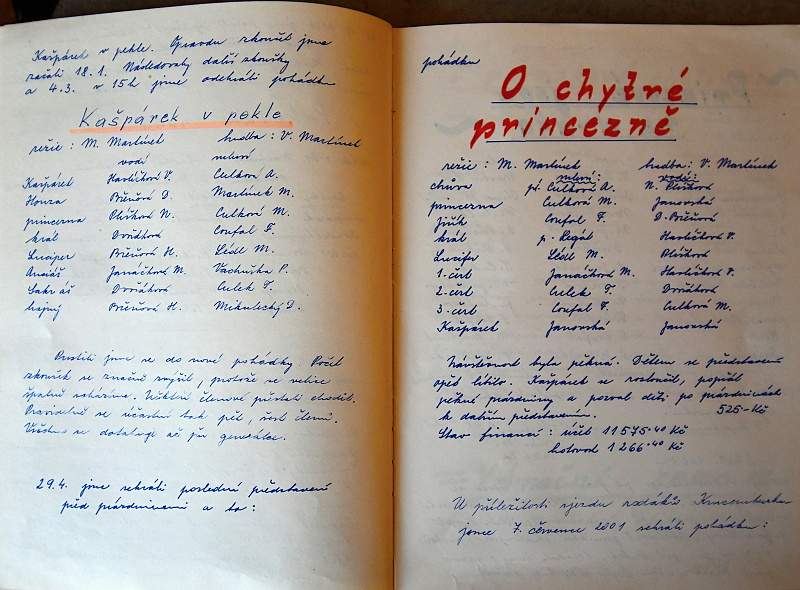 Kašpárek v pekle. Opravdu zkoušet jsme
začali 18.1. Následovaly další zkoušky
a 4.3. v 15h jsme odehráli pohádku
Kašpárek v pekle
režie: M. Martínek hudba: V. Martínek
vodí mluví
Kašpárek Havlíčková V. Culková A.
Honza Břeňová D. Martínek M.
princezna Plíšková N. Culková M.
král Dvořáková Coufal F.
Lucifer Břeňová H. Lédl M.
Ananiáš Janáčková M. Vachuška P.
Dvořáková Culek F.
hajný Břeňová H. Mikulecký D.
Pustili jsme se do nové pohádky. Počet
zkoušek se značně zvýšil, protože se velice
špatně scházíme. Někteří členové přestali chodit.
Pravidelně se účastní tak pět, šest členů.
Všechno se dotahuje až při generálce.
29.4. jsme sehráli poslední představení
před prázdninami a to:
pohádku
O chytré
princezně
režie: M. Martínek hudba: V. Martínek
mluví: vodí:
chůva př. Culková A. N. Plíšková
princezna Culková M. Janovská
Jiřík Coufal F. D. Břeňová
král p. Regál Havlíčková V.
Lucifer Lédl M. Plíšková
1. čert Janáčková M. Havlíčková V.
2. čert Culek F. Dvořáková
3. čert Coufal F. Culková M.
Kašpárek Janovská Janovská
Návštěvnost byla pěkná. Dětem se představení
opět líbilo. Kašpárek se rozloučil, popřál
pěkné prázdniny a pozval děti po prázdninách
k dalším představením. 525-Kč
Stav financí: účet 11575.40 Kč
hotovost 1266.40 Kč
U příležitosti sjezdu rodáků Krucemburku
jsme 7. července 2001 sehráli pohádku: